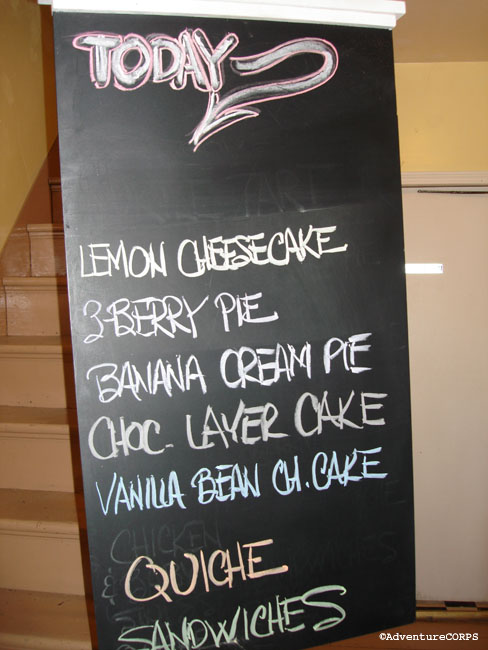 TODAY
LEMON CHEESECAKE
3-BERRY PIE
BANANA CREAM PIE
CHOC- LAYER CAKE
VANILLA BEAN CH. CAKE
CHICKEN
QUICHE
SANDWICHES
©AdventureCORPS